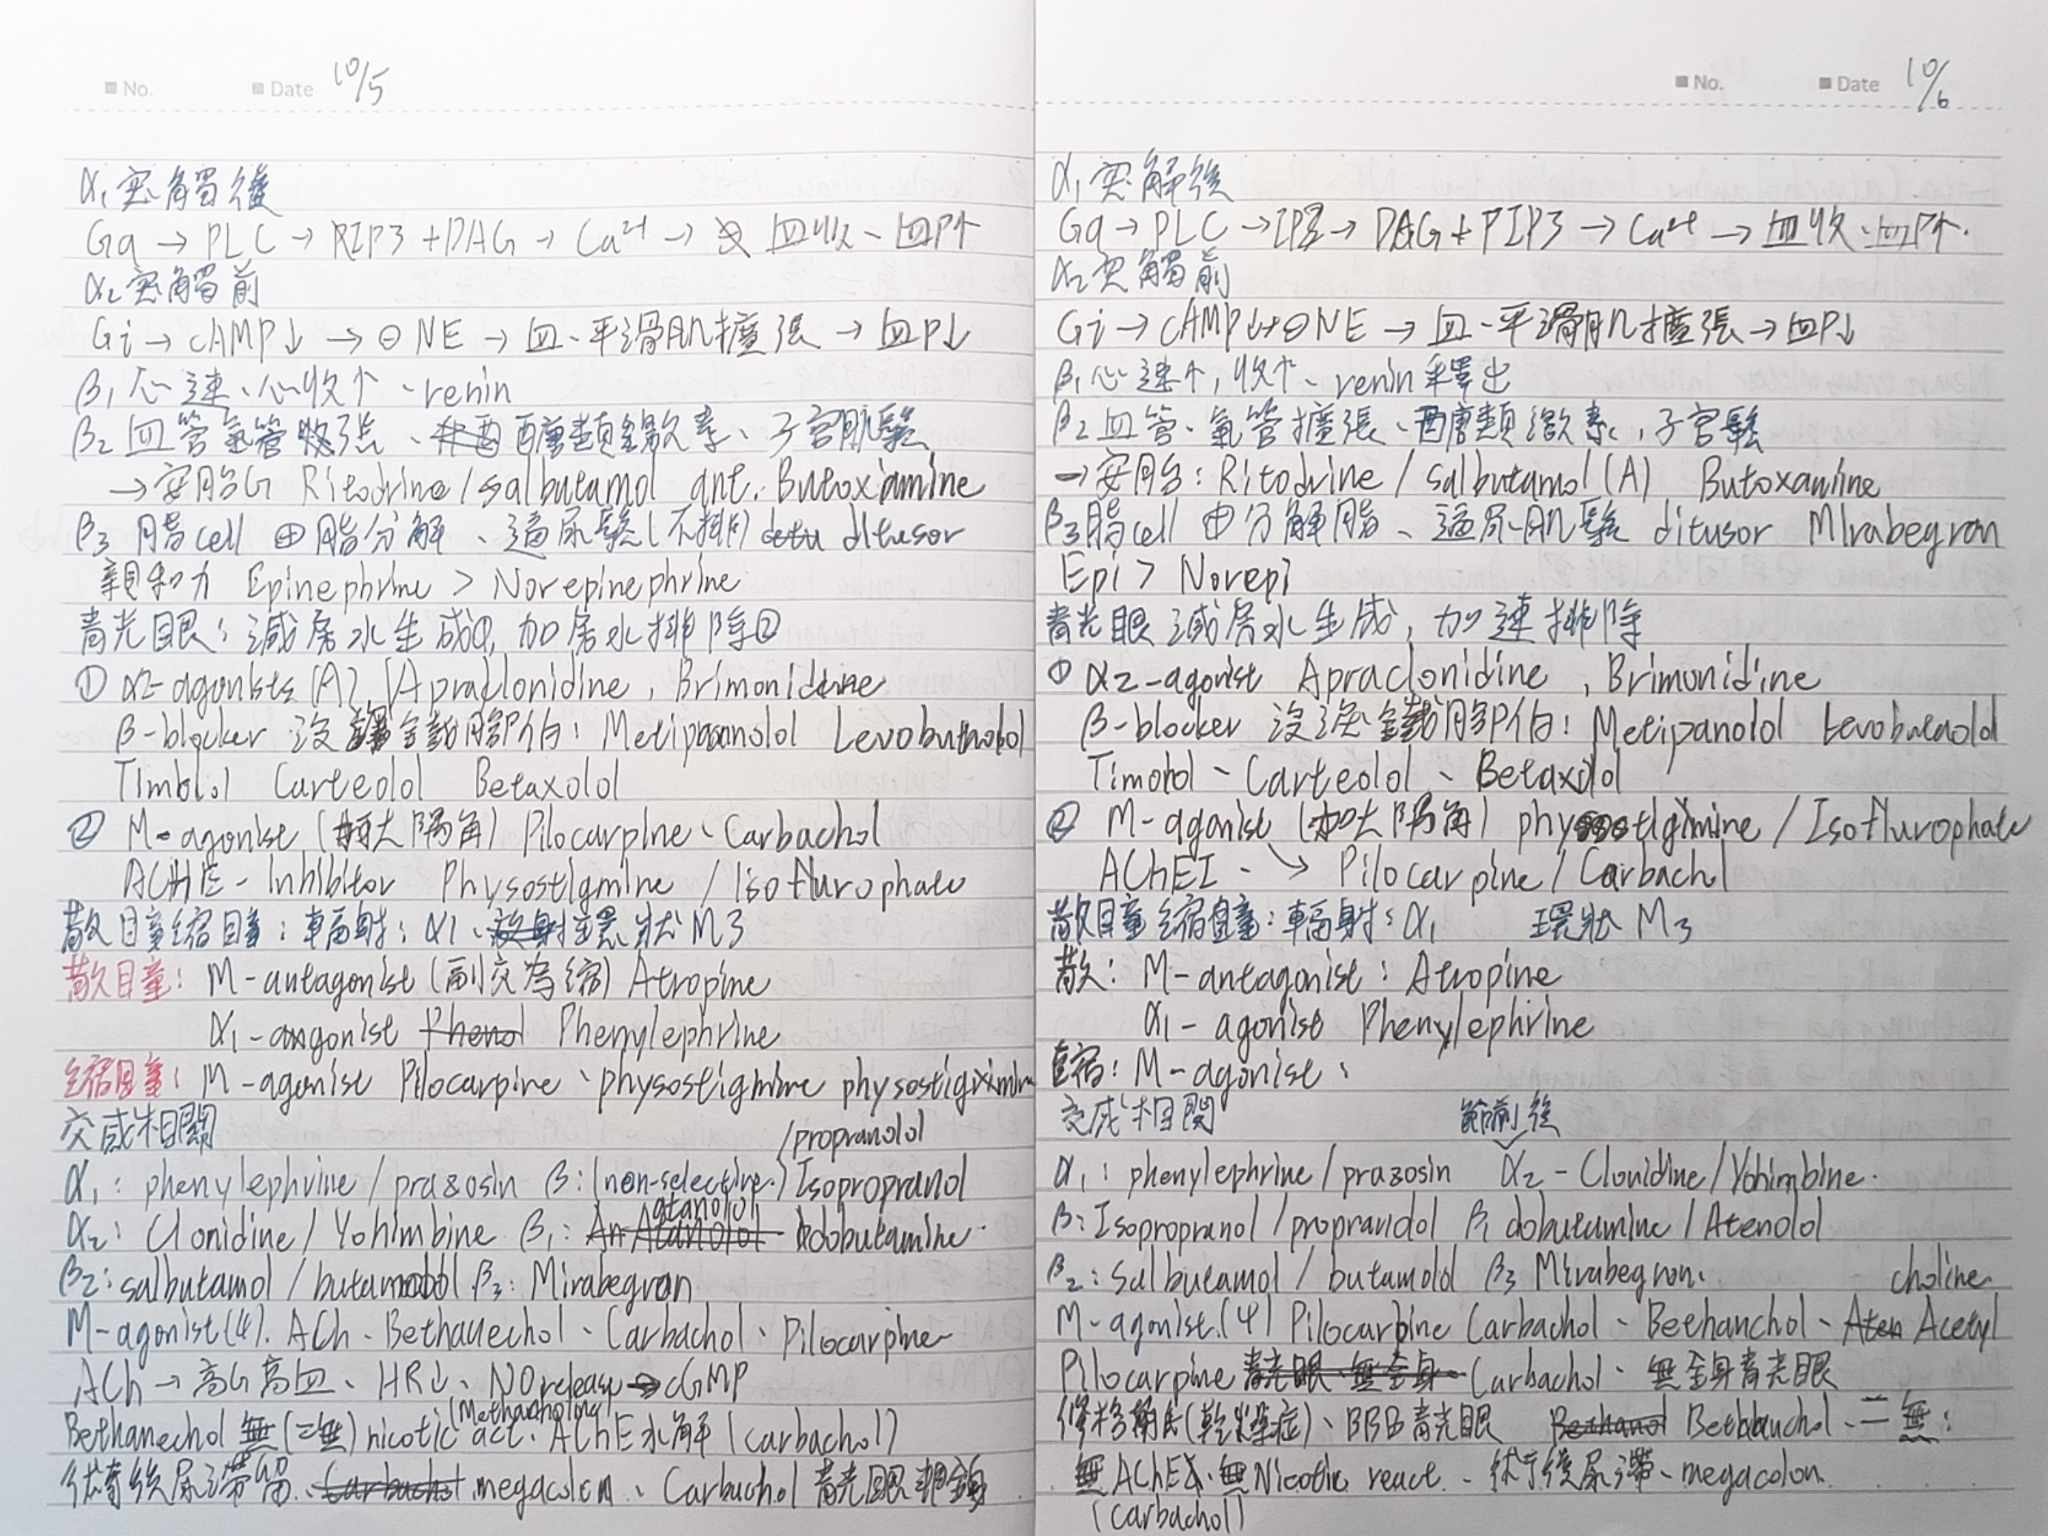 No. Date 10/5
α₁突觸後
Gq → PLC → PIP3 + DAG → Ca²⁺ → 血收、血P↑
α₂突觸前
Gi → cAMP↓ → ⊖ NE → 血、平滑肌擴張 → 血P↓
β₁心速、心收↑、renin
β₂血管氣管張、醣類激素、子宮肌鬆
→ 安胎G Ritodrine / salbutamol ant. Butoxiamine
β₃脂cell ⊕ 脂分解、逼尿鬆(不排) ditusor
親和力 Epinephrine > Norepinephrine
青光眼: 減房水生成①, 加房水排除②
① α2-agonists (A) Apraclonidine, Brimonidine
β-blocker 沒 Metipranolol Levobunolol
Timolol Carteolol Betaxolol
② M-agonist (加大隅角) Pilocarpine、Carbachol
AChE-Inhibitor Physostigmine / Isoflurophate
散瞳縮瞳: 輻射: α1、環狀 M3
散瞳: M-antagonist (副交為縮) Atropine
α₁-angonist Phenylephrine
縮瞳: M-agonist Pilocarpine、physostigmine
交感相關
/propranolol
α₁: phenylephrine / prazosin β: (non-selective.) Isopropranol
atanolol
α₂: Clonidine / Yohimbine β₁: dobutamine
β₂: salbutamol / β₃: Mirabegron
M-agonist(4). ACh、Bethanechol、Carbachol、Pilocarpine
ACh → 高G高血、HR↓、NO release → cGMP
(Methacholine)
Bethanechol 無(二無) nicotic act、AChE水解 (carbachol)
術後尿滯留、megacolon、Carbachol 青光眼
No. Date 10/6
α₁突解後
Gq → PLC → IP3 → DAG + PIP3 → Ca²⁺ → 血收、血P↑.
α₂突觸前
Gi → cAMP↓ → ⊖NE → 血、平滑肌擴張 → 血P↓
β₁心速↑, 收↑、renin釋出
β₂血管、氣管擴張、醣類激素, 子宮鬆
→ 安胎: Ritodrine / salbutamol (A) Butoxamine
β₃脂cell ⊕分解脂、逼尿肌鬆 ditusor Mirabegron
Epi > Norepi
青光眼 減房水生成, 加速排除
① α2-agonist Apraclonidine, Brimonidine
β-blocker 沒 Metipanolol
Timolol、Carteolol、Betaxolol
② M-agonist (加大隅角) / Isoflurophate
AChEI、→ Pilocarpine / Carbachol
散瞳縮瞳: 輻射: α₁ 環狀 M3
散: M-antagonist: Atropine
α₁-agonist Phenylephrine
縮: M-agonist:
交感相關 節前後
α₁: phenylephrine / prazosin α₂-Clonidine / Yohimbine.
β: Isopropranol / propranolol β₁ dobutamine / Atenolol
β₂: Salbutamol / butamold β₃ Mirabegron.
choline
M-agonist.(4) Pilocarpine Carbachol、Bethanchol、Acetyl
Pilocarpine Carbachol、無全身青光眼
修格蘭氏(乾燥症)、BBB青光眼 二無:
無AChEI、無Nicotic react、術後尿滯、megacolon.
(carbachol)